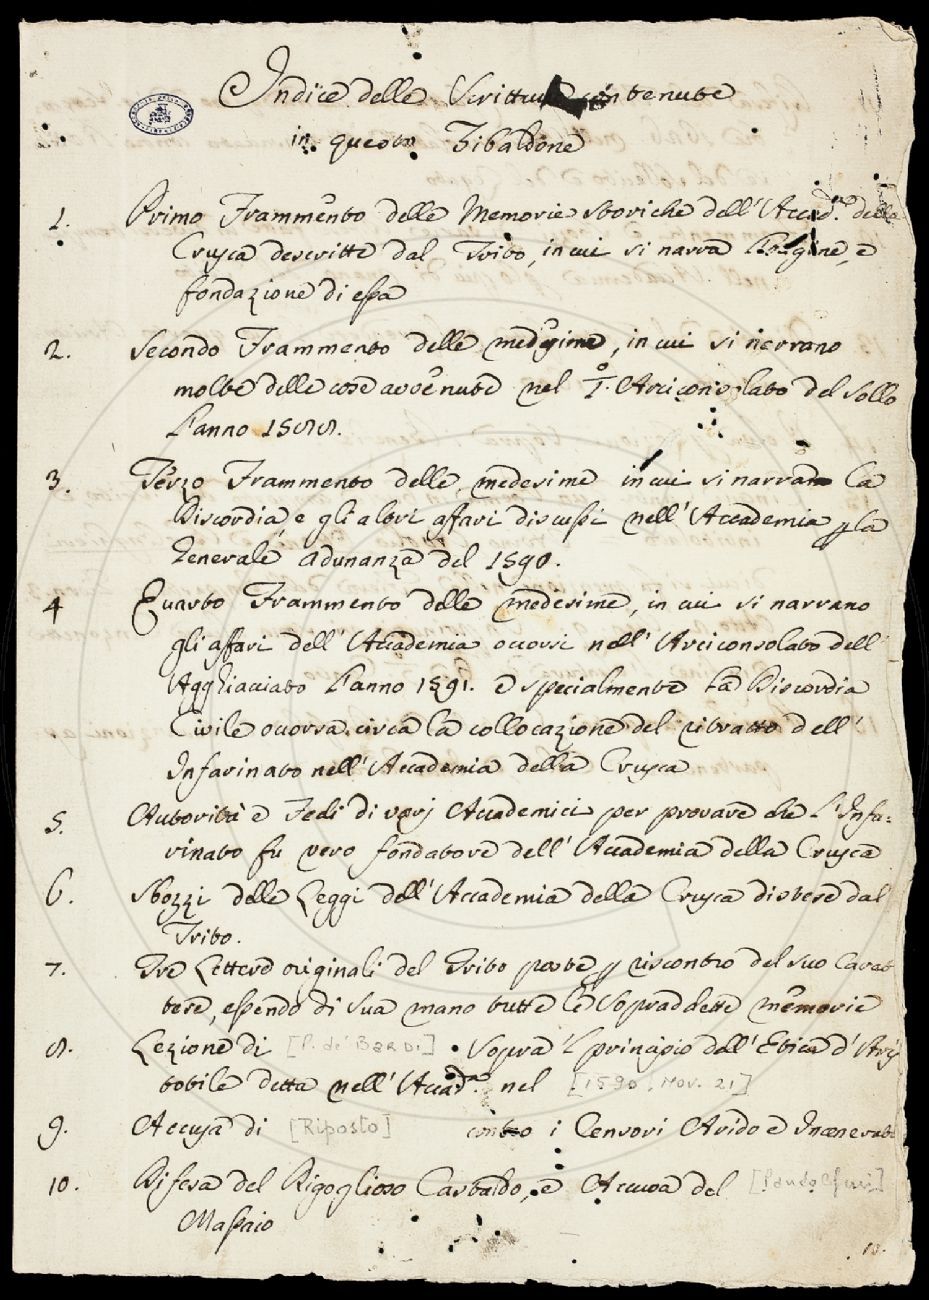 Indice delle Scritture contenute
in questo Zibaldone
1. Primo Frammento delle Memorie storiche dell'Accad.ª della
Crusca descritte dal Trito, in cui si narra l'origine, e
fondazione di essa
2. Secondo Frammento delle medesime, in cui si narrano
molte delle cose avvenute nel I.º Arciconsolato del Sollo
l'anno 1588.
3. Terzo Frammento delle medesime in cui si narrano la
Discordia, e gli altri affari discussi nell'Accademia p la
Generale adunanza del 1590.
4 Quarto Frammento delle medesime, in cui si narrano
gli affari dell'Accademia ocorsi nell'Arciconsolato dell'
Agghiacciato l'anno 1591. e specialmente la Discordia
Civile ocorsa circa la collocazione del ritratto dell'
Infarinato nell'Accademia della Crusca
5. Autorità e Fedi di varj Accademici per provare che l'Infa=
rinato fu vero fondatore dell'Accademia della Crusca
6. Sbozzi delle Leggi dell'Accademia della Crusca distese dal
Trito.
7. Tre Lettere originali del Trito poste p riscontro del suo Carat
tere, essendo di sua mano tutte le sopraddette memorie
8. Lezione di [P. de' BARDI] sopra 'l principio dell'Etica d'Aris
totile detta nell'Accad.ª nel [1590, Nov. 21]
9. Accusa di [Riposto] contro i Censori Arido e
10. Difesa del Rigoglioso Castaldo, e Accusa del [Pandolfini]
Massaio